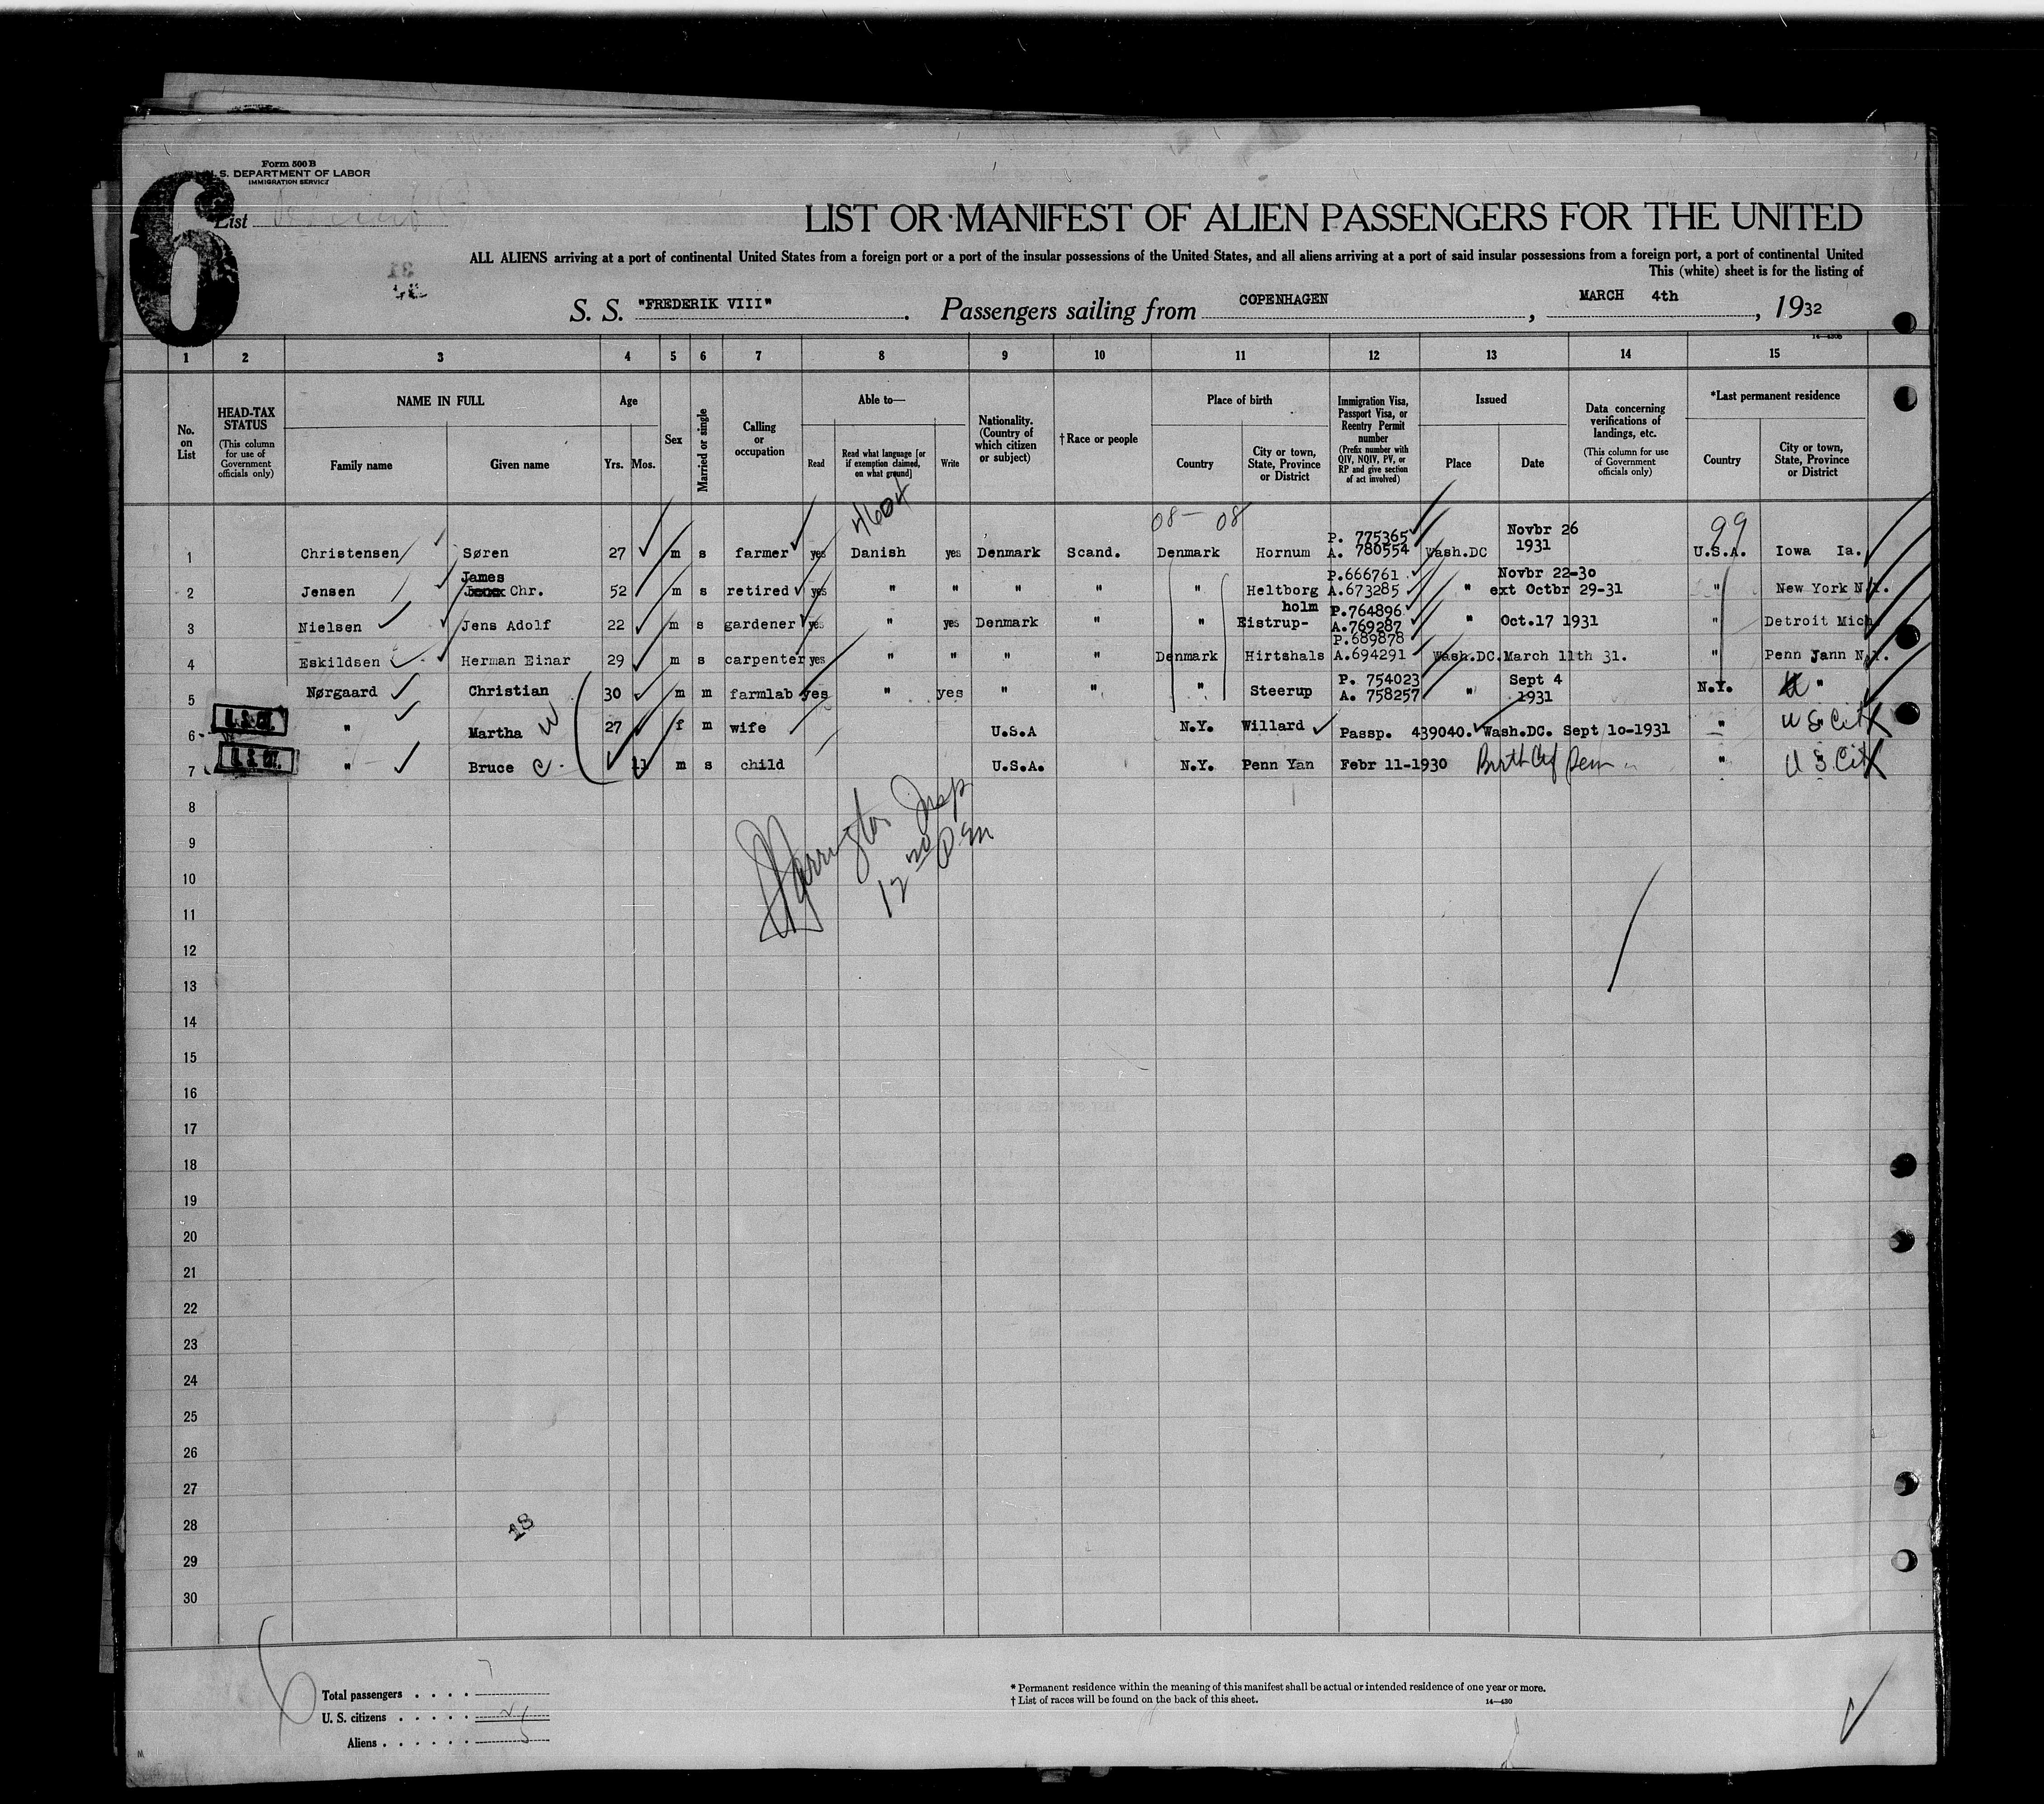 Form 500 B
S. DEPARTMENT OF LABOR
IMMIGRATION SERVICE
6
List
LIST OR MANIFEST OF ALIEN PASSENGERS FOR THE UNITED
ALL ALIENS arriving at a port of continental United States from a foreign port or a port of the insular possessions of the United States, and all aliens arriving at a port of said insular possessions from a foreign port, a port of continental United
This (white) sheet is for the listing of
S. S. "FREDERIK VIII". Passengers sailing from COPENHAGEN, MARCH 4th, 1932
14—430B
1 2 3 4 5 6 7 8 9 10 11 12 13 14 15
No. on List
HEAD-TAX STATUS (This column for use of Government officials only)
NAME IN FULL
Family name Given name
Age
Yrs. Mos.
Sex
Married or single
Calling or occupation
Able to—
Read
Read what language [or if exemption claimed, on what ground]
Write
Nationality. (Country of which citizen or subject)
†Race or people
Place of birth
Country
City or town, State, Province or District
Immigration Visa, Passport Visa, or Reentry Permit number (Prefix number with QIV, NQIV, PV, or RP and give section of act involved)
Issued
Place Date
Data concerning verifications of landings, etc. (This column for use of Government officials only)
*Last permanent residence
Country
City or town, State, Province or District
4604 08— 08 99
1 Christensen Søren 27 m s farmer yes Danish yes Denmark Scand. Denmark Hornum P. 775365 A. 780554 Wash.DC Novbr 26 1931 U.S.A. Iowa Ia.
2 Jensen James Chr. 52 m s retired yes " " " " " Heltborg P.666761 A.673285 " Novbr 22-30 ext Octbr 29-31 " New York N.Y.
3 Nielsen Jens Adolf 22 m s gardener yes " yes Denmark " " Eistrup-holm P.764896 A.769287 " Oct.17 1931 " Detroit Mich
4 Eskildsen Herman Einar 29 m s carpenter yes " " " " Denmark Hirtshals P.689878 A.694291 Wash.DC. March 11th 31. " Penn Jann N.Y.
5 Nørgaard Christian 30 m m farmlab yes " yes " " " Steerup P. 754023 A. 758257 " Sept 4 1931 N.Y. "
6 " Martha W 27 f m wife U.S.A N.Y. Willard Passp. 439040. Wash.DC. Sept 10-1931 " " U S Cit
7 " Bruce C. 11 m s child U.S.A. N.Y. Penn Yan Febr 11-1930 Birth Cef " " U S Cit
Insp
12 20 PM
8
9
10
11
12
13
14
15
16
17
18
19
20
21
22
23
24
25
26
27
28
29
30
18
Total passengers . . . . 7
U. S. citizens . . . . . 2
Aliens . . . . . . 5
* Permanent residence within the meaning of this manifest shall be actual or intended residence of one year or more.
† List of races will be found on the back of this sheet.
14—430